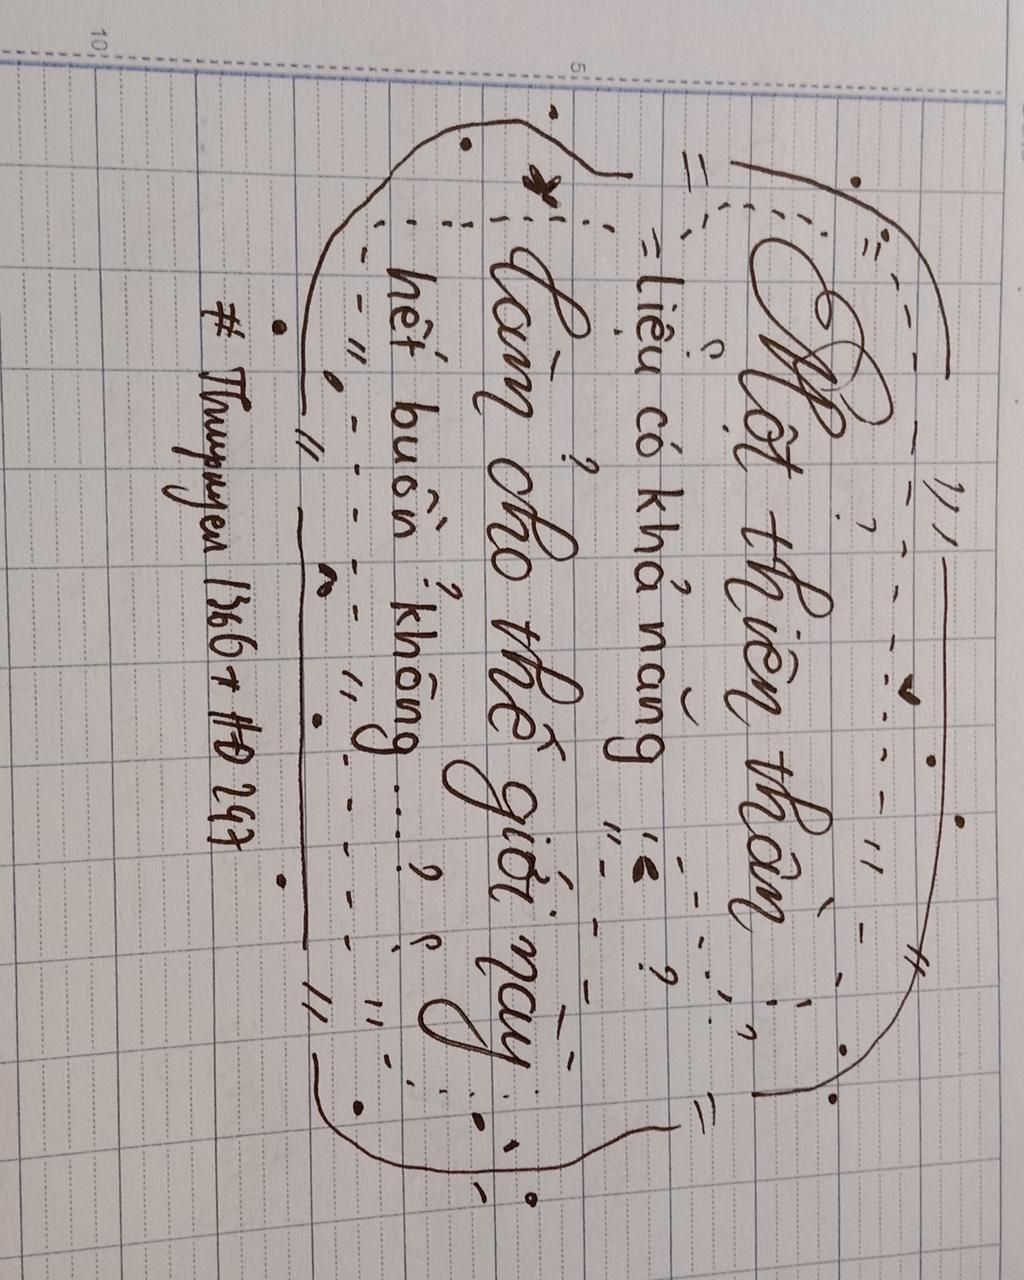 Một thiên thần
= liệu có khả năng
Làm cho thế giới này
hết buồn không....?
# Thuynguyen 1366 + HD 247
10
5